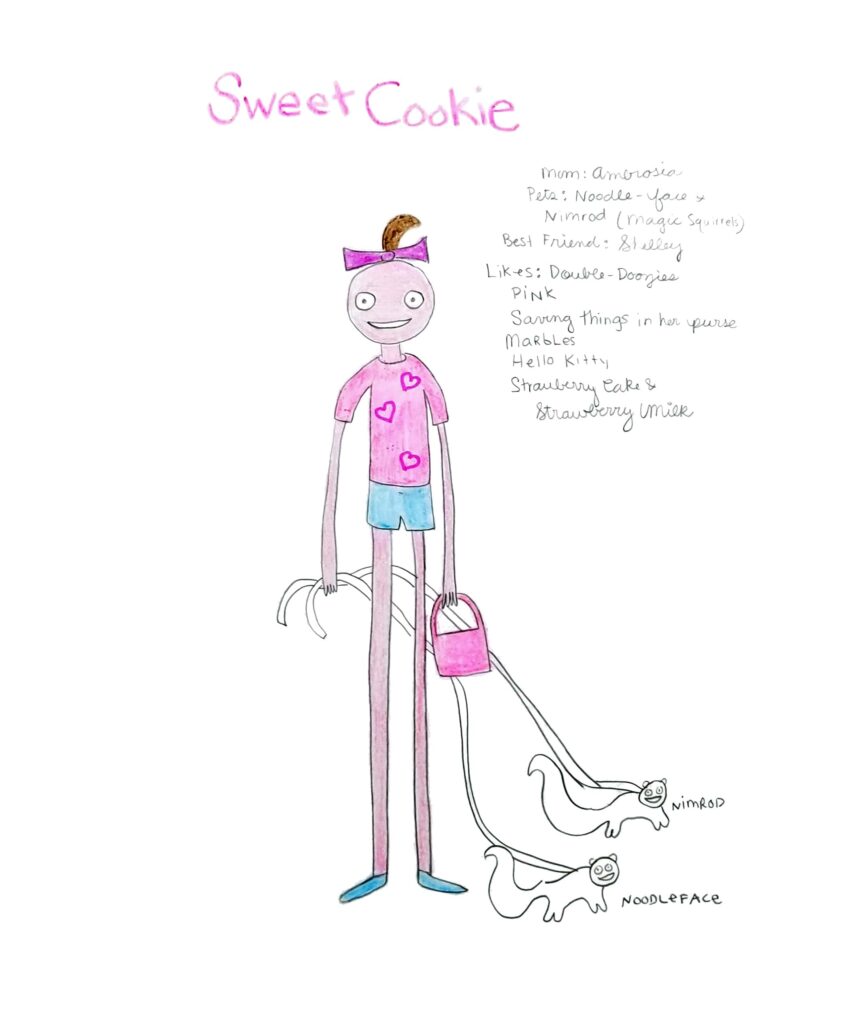 Sweet Cookie
Mom: Ambrosia
Pets: Noodle-face &
Nimrod (Magic Squirrels)
Best Friend: Shelley
Likes: Double-Doozies
PINK
Saving things in her purse
MARBLES
Hello Kitty
Strawberry Cake &
Strawberry Milk
NiMROD
NOODLeFACe